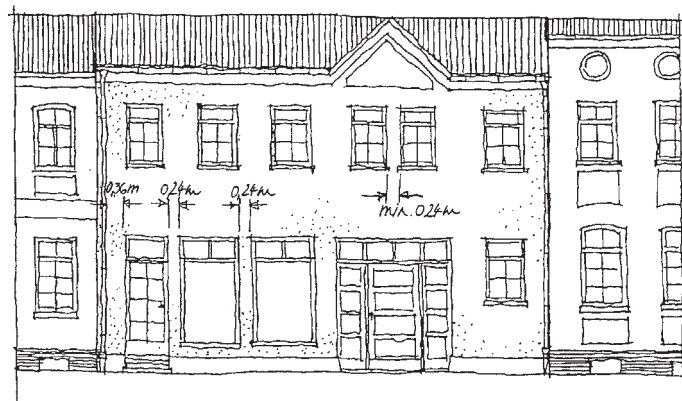 0,36m 0,24m 0,24m
min. 0,24m